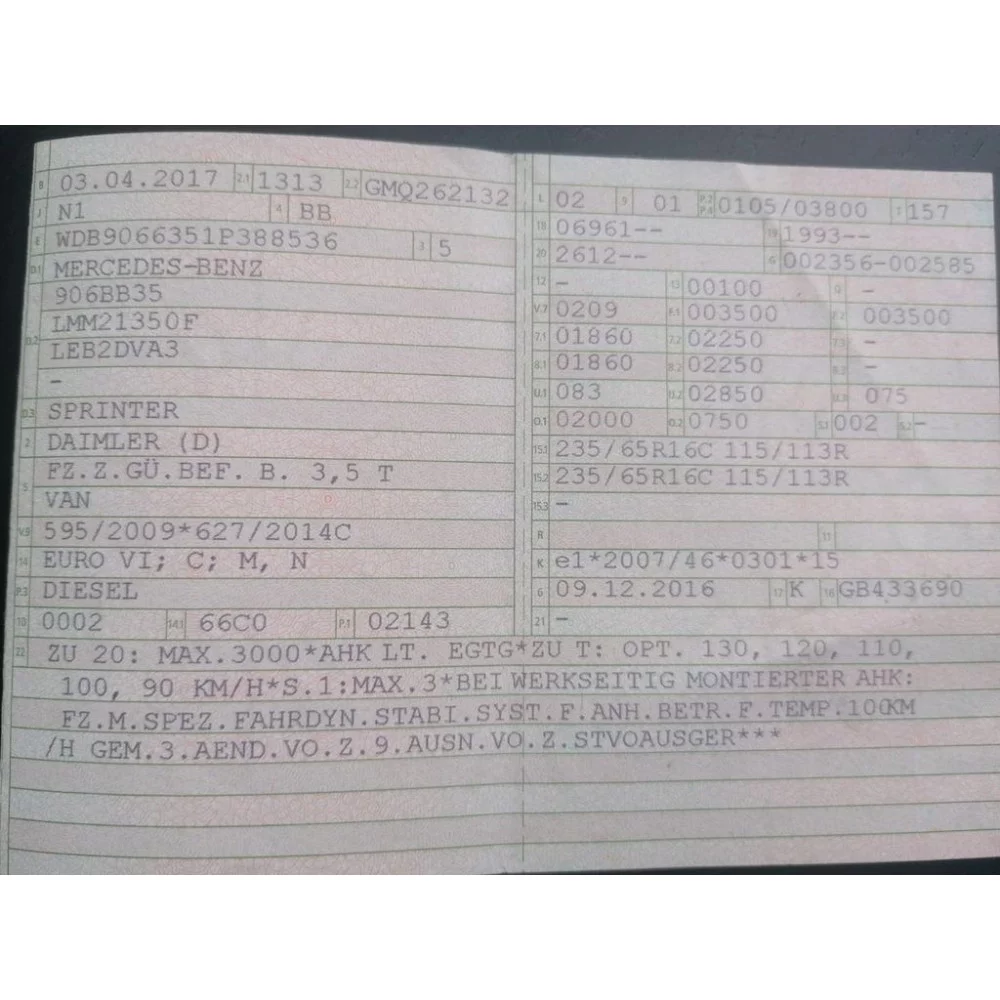 B 03.04.2017 2.1 1313 2.2 GMQ262132
J N1 4 BB
E WDB9066351P388536 3 5
D.1 MERCEDES-BENZ
906BB35
D.2 LMM21350F
LEB2DVA3
–
D.3 SPRINTER
2 DAIMLER (D)
5 FZ.Z.GÜ.BEF. B. 3,5 T
VAN
V.9 595/2009*627/2014C
14 EURO VI; C; M, N
P.3 DIESEL
10 0002 14.1 66C0 P.1 02143
L 02 9 01 P.2 P.4 0105/03800 T 157
18 06961-- 19 1993--
20 2612-- G 002356-002585
12 – 13 00100 Q –
V.7 0209 F.1 003500 F.2 003500
7.1 01860 7.2 02250 7.3 –
8.1 01860 8.2 02250 8.3 –
U.1 083 U.2 02850 U.3 075
O.1 02000 O.2 0750 S.1 002 S.2 –
15.1 235/65R16C 115/113R
15.2 235/65R16C 115/113R
15.3 –
R 11
K e1*2007/46*0301*15
6 09.12.2016 17 K 16 GB433690
21 –
22 ZU 20: MAX.3000*AHK LT. EGTG*ZU T: OPT. 130, 120, 110,
100, 90 KM/H*S.1:MAX.3*BEI WERKSEITIG MONTIERTER AHK:
FZ.M.SPEZ.FAHRDYN.STABI.SYST.F.ANH.BETR.F.TEMP.100KM
/H GEM.3.AEND.VO.Z.9.AUSN.VO.Z.STVOAUSGER***